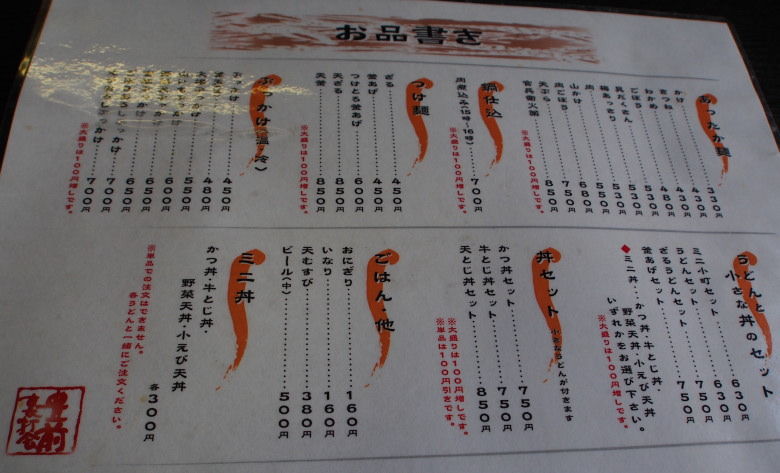 お品書き
あったか麺
かけ 330円
きつね 430円
わかめ 430円
ごぼう 480円
具だくさん 530円
梅あっさり 530円
肉 550円
山かけ 550円
肉ごぼう 680円
天ぷら 750円
官兵衛火鍋 850円
※大盛りは100円増しです。
鍋仕込
肉煮込み(15時〜16時) 700円
※大盛りは100円増しです。
つけ麺
ざる 450円
釜あげ 450円
つけとろ釜あげ 600円
天ざる 850円
天釜 850円
※大盛りは100円増しです。
ぶっかけ(温・冷)
ぶっかけ 450円
480円
550円
600円
650円
650円
700円
700円
※大盛りは100円増しです。
うどんと
小さな丼のセット
ミニ小町セット 630円
うどんセット 750円
ざるうどんセット 630円
釜あげセット 750円
◆ミニ丼…かつ丼・牛とじ丼・
野菜天丼・小えび天丼
いずれかをお選び下さい。
※大盛りは100円増しです。
丼セット 小さなうどんが付きます
かつ丼セット 750円
牛とじ丼セット 750円
天とじ丼セット 850円
※大盛りは100円増しです。
※単品は100円引きです。
ごはん・他
おにぎり 160円
いなり 160円
天むすび 380円
ビール(中) 500円
ミニ丼
かつ丼・牛とじ丼・
野菜天丼・小えび天丼
各300円
※単品での注文はできません。
各うどんと一緒にご注文ください。
豊前